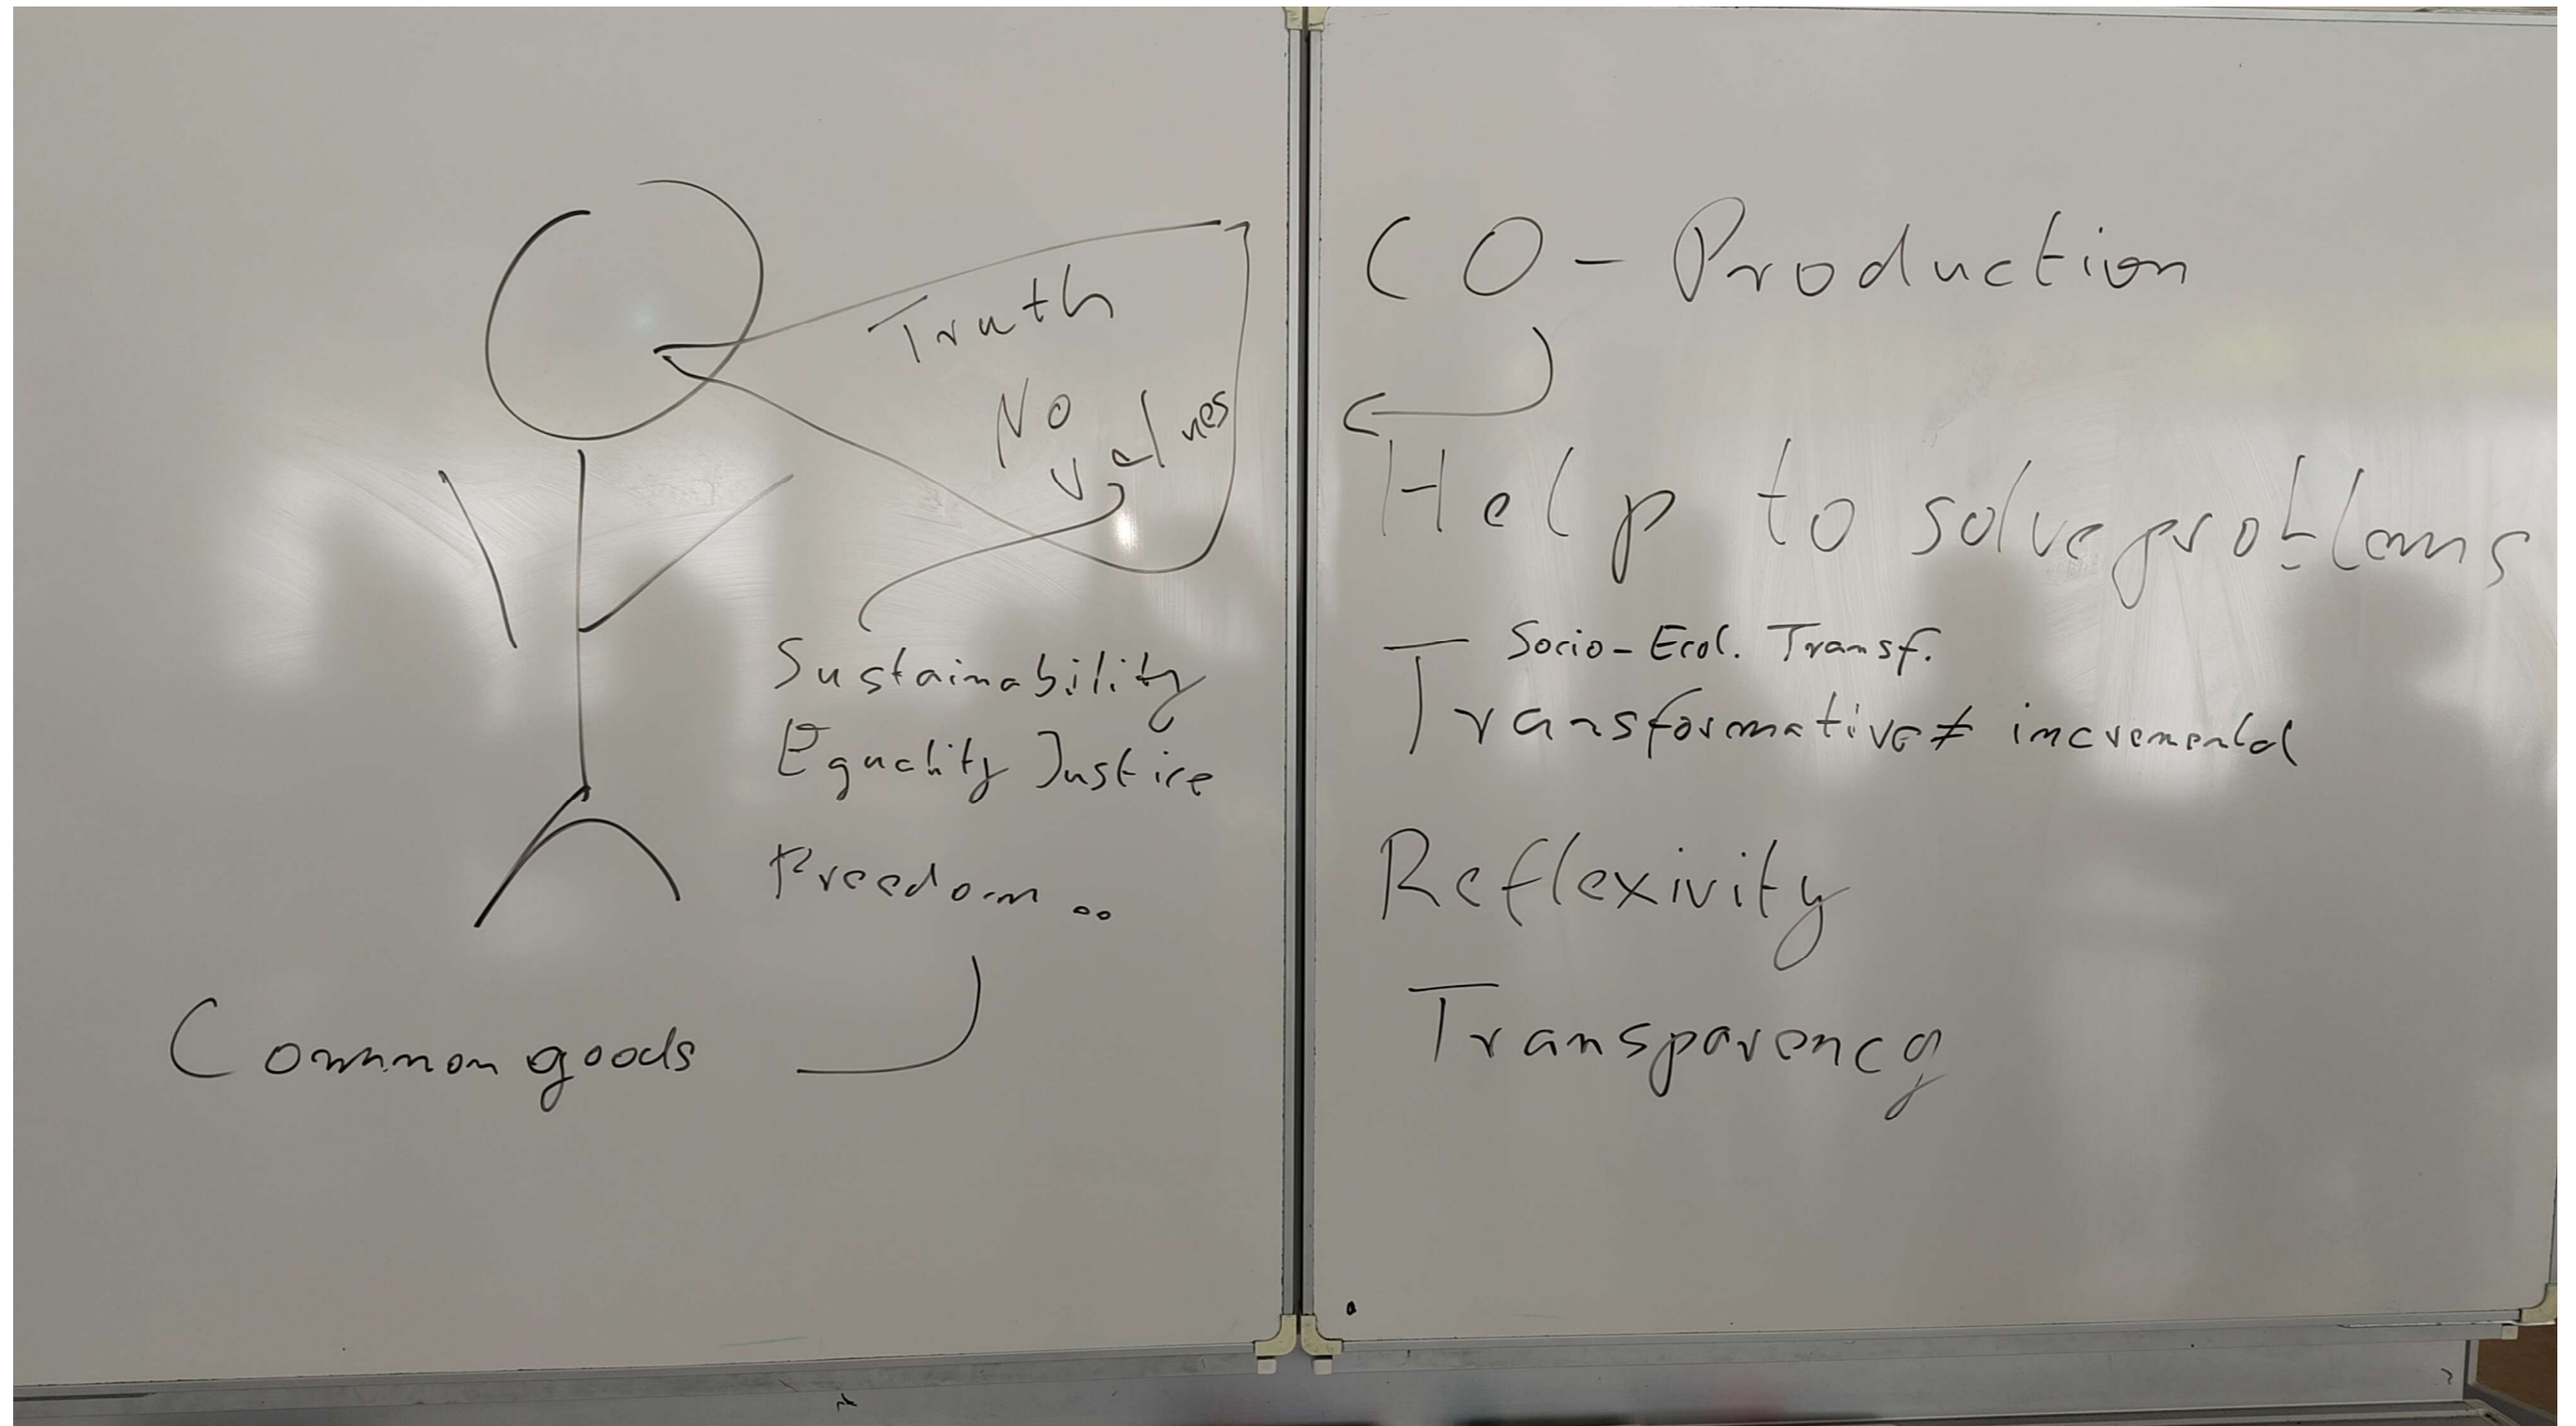 Truth
No
values
Sustainability
Equality Justice
Freedom ..
Common goods
CO-Production
Help to solve problems
Socio-Ecol. Transf.
Transformative ≠ incremental
Reflexivity
Transparency